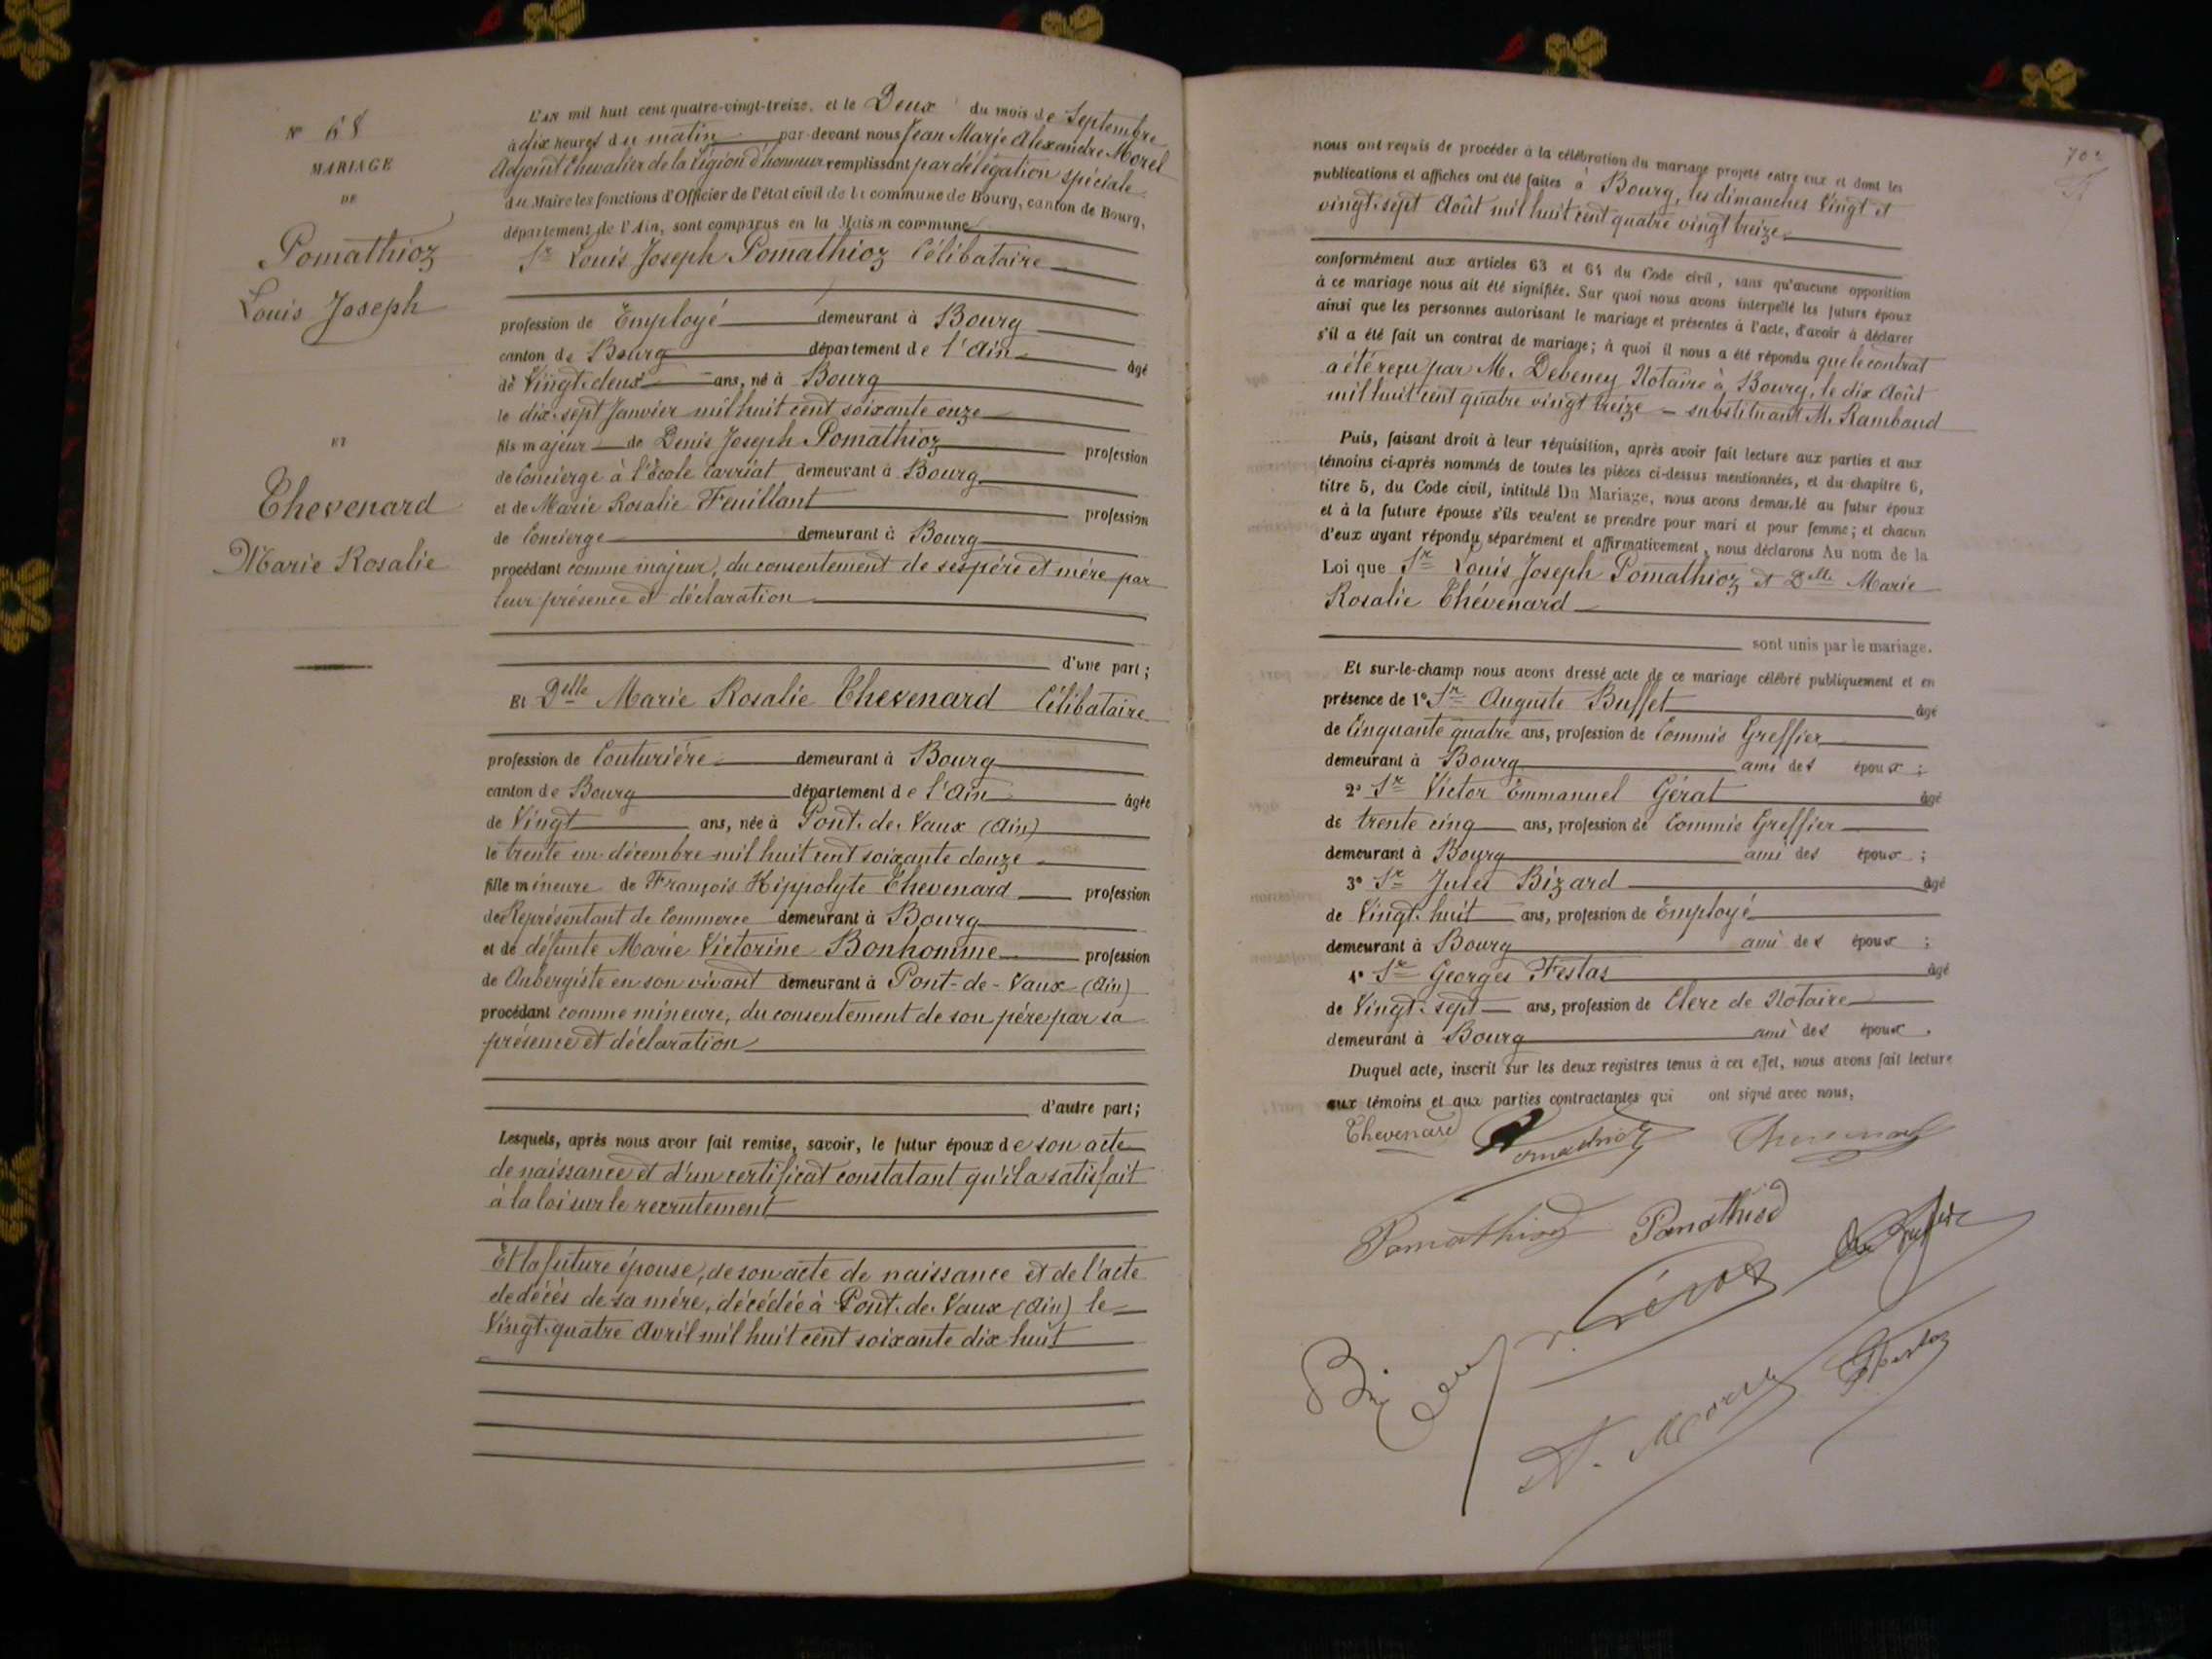 N° 68
MARIAGE
DE
Pomathioz
Louis Joseph
ET
Thevenard
Marie Rosalie
L'AN mil huit cent quatre-vingt-treize, et le Deux du mois de Septembre
à dix heures du matin par-devant nous Jean Marie Alexandre Morel
Adjoint Chevalier de la Légion d'honneur remplissant par délégation spéciale
du Maire les fonctions d'Officier de l'état civil de la commune de Bourg, canton de Bourg,
département de l'Ain, sont comparus en la Maison commune
Sr Louis Joseph Pomathioz Célibataire
profession de Employé demeurant à Bourg
canton de Bourg département de l'Ain âgé
de Vingt-deux ans, né à Bourg
le dix-sept Janvier mil huit cent soixante onze
fils majeur de Denis Joseph Pomathioz profession
de Concierge à l'école Carriat demeurant à Bourg
et de Marie Rosalie Feuillant profession
de Concierge demeurant à Bourg
procédant comme majeur, du consentement de ses père et mère par
leur présence et déclaration
d'une part;
Et Delle Marie Rosalie Thevenard Célibataire
profession de Couturière demeurant à Bourg
canton de Bourg département de l'Ain âgée
de Vingt ans, née à Pont-de-Vaux (Ain)
le trente un décembre mil huit cent soixante douze
fille mineure de François Hippolyte Thevenard profession
de Représentant de Commerce demeurant à Bourg
et de défunte Marie Victorine Bonhomme profession
de Aubergiste en son vivant demeurant à Pont-de-Vaux (Ain)
procédant comme mineure, du consentement de son père par sa
présence et déclaration
d'autre part;
Lesquels, après nous avoir fait remise, savoir, le futur époux de son acte
de naissance et d'un certificat constatant qu'il a satisfait
à la loi sur le recrutement
Et la future épouse, de son acte de naissance et de l'acte
de décès de sa mère, décédée à Pont-de-Vaux (Ain) le
Vingt-quatre Avril mil huit cent soixante dix huit
nous ont requis de procéder à la célébration du mariage projeté entre eux et dont les
publications et affiches ont été faites à Bourg, les dimanches Vingt et
vingt-sept Août mil huit cent quatre vingt treize
conformément aux articles 63 et 64 du Code civil, sans qu'aucune opposition
à ce mariage nous ait été signifiée. Sur quoi nous avons interpellé les futurs époux
ainsi que les personnes autorisant le mariage et présentes à l'acte, d'avoir à déclarer
s'il a été fait un contrat de mariage; à quoi il nous a été répondu que le contrat
a été reçu par M. Debeney Notaire à Bourg, le dix Août
mil huit cent quatre vingt treize - substituant M. Rambaud
Puis, faisant droit à leur réquisition, après avoir fait lecture aux parties et aux
témoins ci-après nommés de toutes les pièces ci-dessus mentionnées, et du chapitre 6,
titre 5, du Code civil, intitulé Du Mariage, nous avons demandé au futur époux
et à la future épouse s'ils veulent se prendre pour mari et pour femme; et chacun
d'eux ayant répondu séparément et affirmativement, nous déclarons Au nom de la
Loi que Sr Louis Joseph Pomathioz et Delle Marie
Rosalie Thévenard
sont unis par le mariage.
Et sur-le-champ nous avons dressé acte de ce mariage célébré publiquement et en
présence de 1° Sr Auguste Buffet âgé
de Cinquante quatre ans, profession de Commis Greffier
demeurant à Bourg ami des époux;
2° Sr Victor Emmanuel Gérat âgé
de trente cinq ans, profession de Commis Greffier
demeurant à Bourg ami des époux;
3° Sr Jules Bizard âgé
de Vingt-huit ans, profession de Employé
demeurant à Bourg ami des époux;
4° Sr Georges Festas âgé
de Vingt-sept ans, profession de Clerc de Notaire
demeurant à Bourg ami des époux.
Duquel acte, inscrit sur les deux registres tenus à cet effet, nous avons fait lecture
aux témoins et aux parties contractantes qui ont signé avec nous,
Thevenard Pomathioz Thevenard
Pomathioz Pomathiod
A. Morel